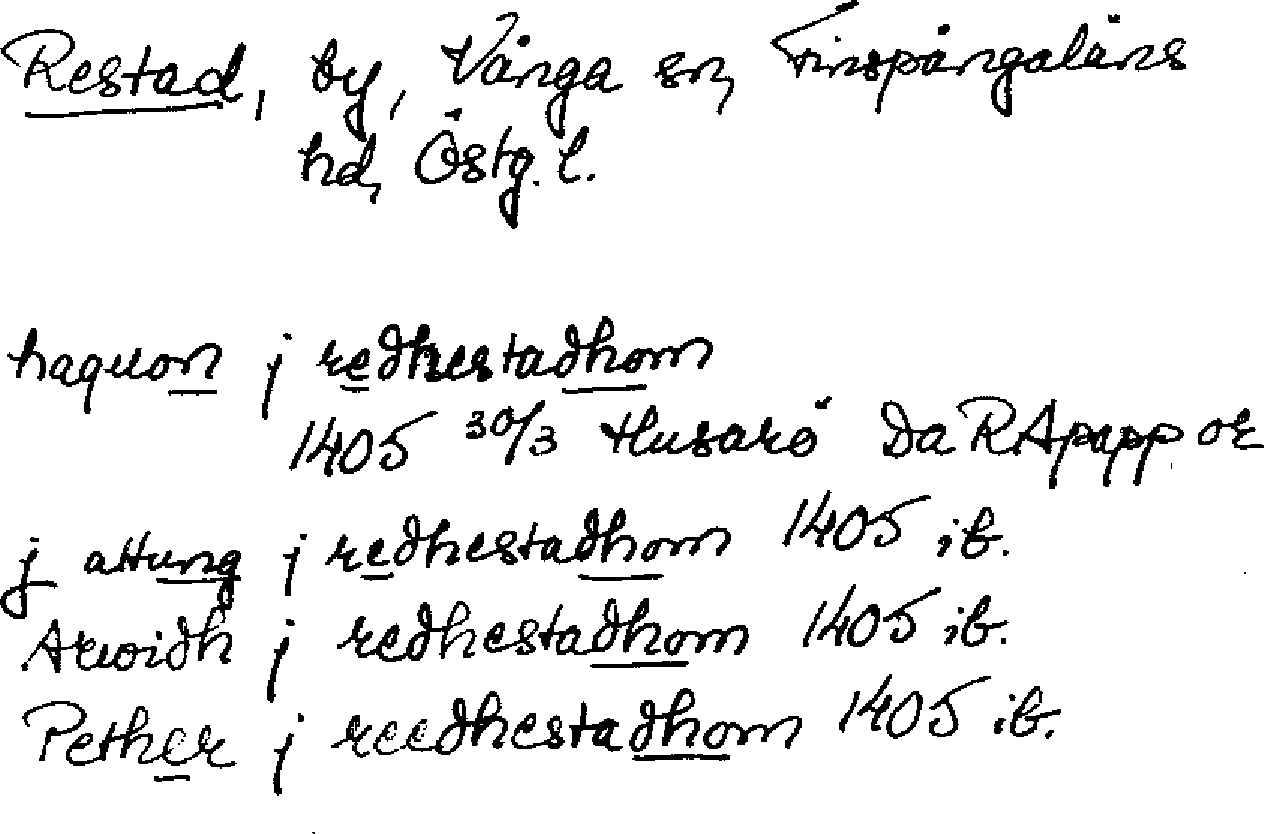 Restad, by, Vånga sn, Finspångaläns
hd, Östg. l.
haquon j redhestadhom
1405 30/3 Husarö Da RApapp or
j attung j redhestadhom 1405 ib.
Arwidh j redhestadhom 1405 ib.
Pether j reedhestadhom 1405 ib.